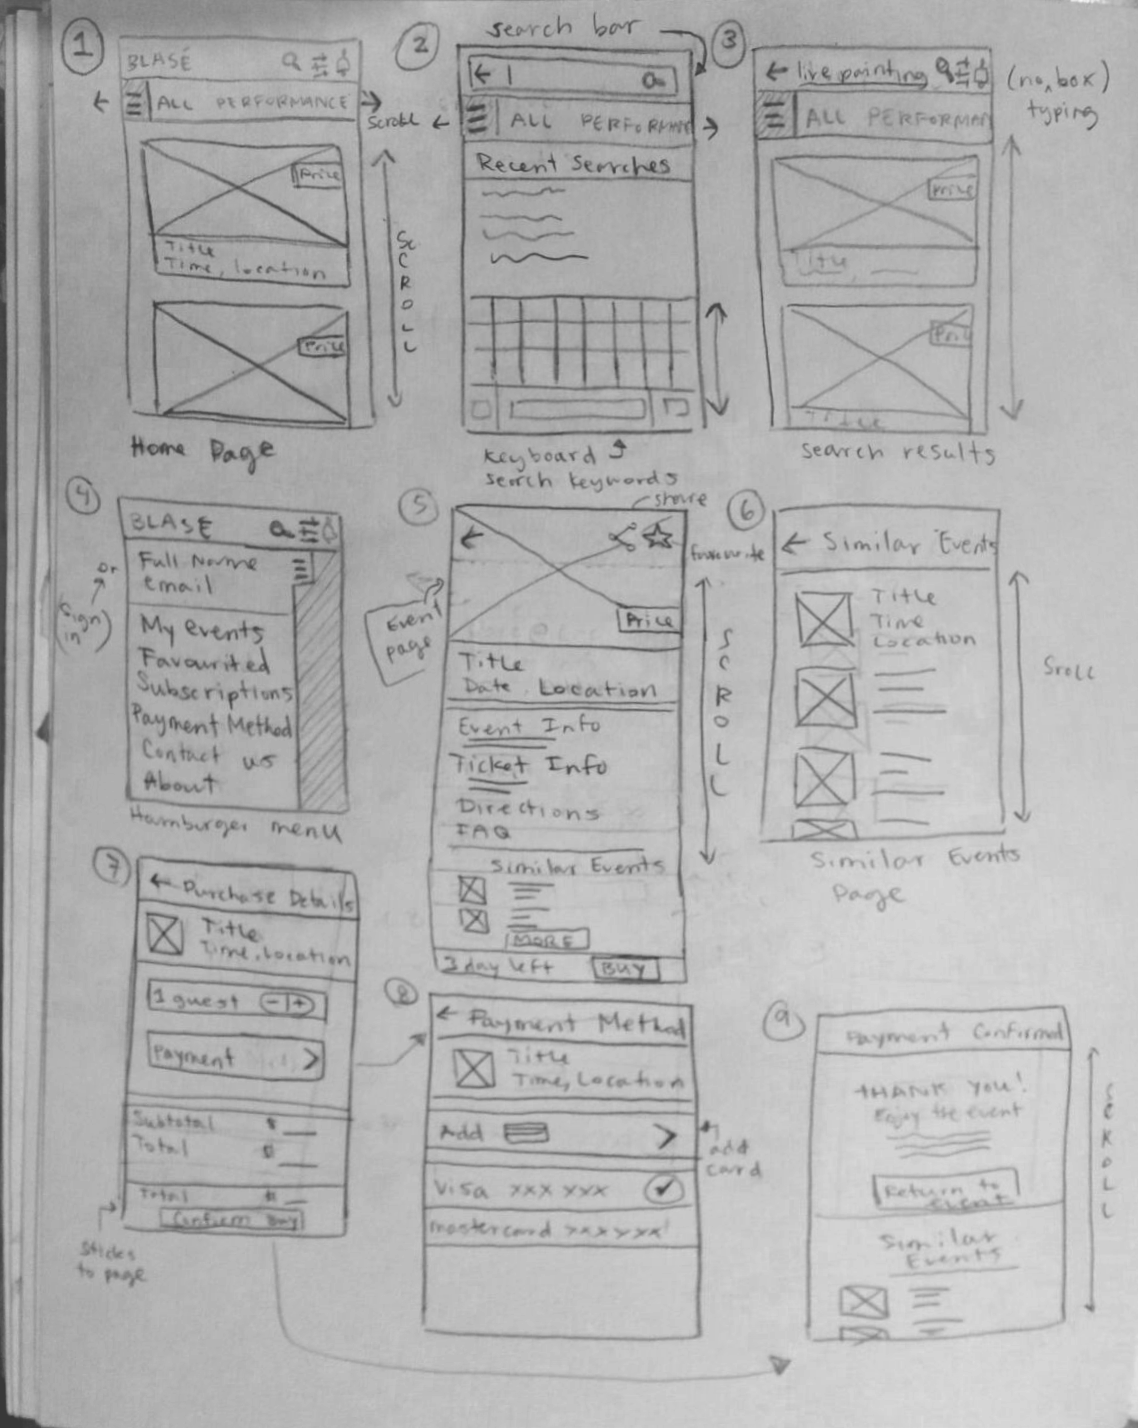 1
BLASÉ
ALL PERFORMANCE
Scroll
Price
Title
Time, location
SCROLL
Price
Home Page
2
search bar
ALL PERFORMAN
Recent Searches
keyboard
search keywords
3
live painting
(no box)
typing
ALL PERFORMAN
Price
Title
Price
Title
search results
4
BLASÉ
Full Name
email
or
(sign in)
My events
Favourited
Subscriptions
Payment Method
Contact us
About
Hamburger menu
5
share
favourite
Event page
Price
Title
Date, Location
Event Info
Ticket Info
Directions
FAQ
Similar Events
MORE
3 day left BUY
SCROLL
6
Similar Events
Title
Time
Location
Sroll
Similar Events
Page
7
Purchase Details
Title
Time, Location
1 guest - +
Payment
Subtotal $
Total $
Total $
Confirm Buy
sticks
to page
8
Payment Method
Title
Time, Location
Add
add
card
Visa xxx xxx
mastercard xxx xxx
9
Payment Confirmed
THANK YOU!
Enjoy the event
Return to
event
Similar
Events
SCROLL